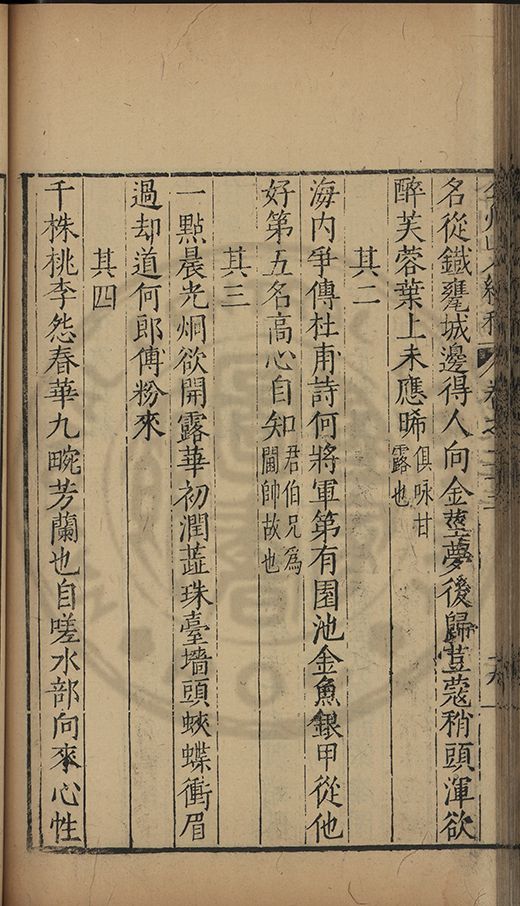 弇州山人續稿 卷之二十三
名從鐵甕城邊得人向金莖夢後歸荳蔻稍頭渾欲
醉芙蓉葉上未應晞俱咏甘露也
其二
海内爭傳杜甫詩何將軍第有園池金魚銀甲從他
好第五名高心自知君伯兄爲閫帥故也
其三
一點晨光烱欲開露華初潤蕋珠臺墻頭蛺蝶衝眉
過却道何郎傅粉來
其四
千株桃李怨春華九畹芳蘭也自嗟水部向來心性